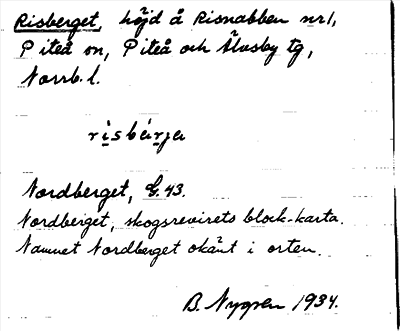 Risberget, höjd å Risnabben nr 1,
Piteå sn, Piteå och Älvsby tg,
Norrb. l.
risbärja
Nordberget, G. 43.
Nordberget, skogsrevirets block-karta.
Namnet Nordberget okänt i orten.
B. Nygren 1934.